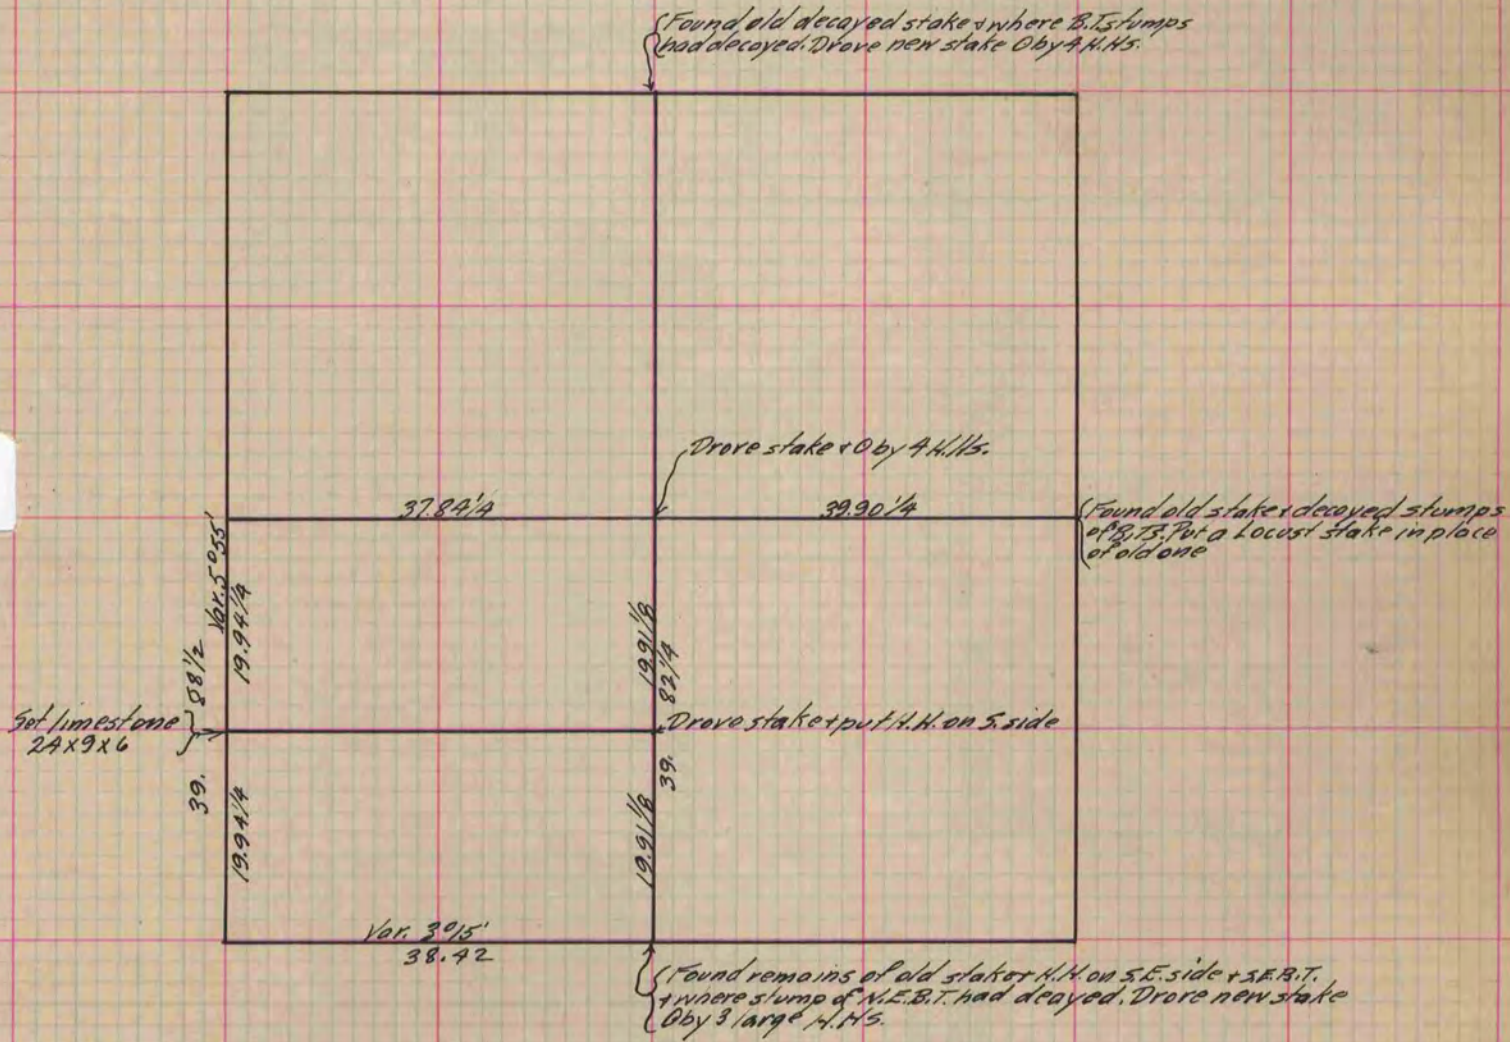 Found old decayed stake & where B.Ts stumps
had decayed. Drove new stake O by 4 H.Hs.
Drove stake & O by 4 H.Hs.
37.84 1/4
39.90 1/4
Found old stake & decayed stumps
of B.Ts. Put a Locust stake in place
of old one
Var. 5° 55'
19.94 1/4
39. 88 1/2
19.91 1/8
39. 82 1/4
Set limestone
24 x 9 x 6
Drove stake & put H.H. on S. side
19.94 1/4
19.91 1/8
Var. 3° 15'
38.42
Found remains of old stake & H.H. on S.E. side & S.E.B.T.
& where stump of N.E.B.T. had deayed. Drore new stake
O by 3 large H.Hs.